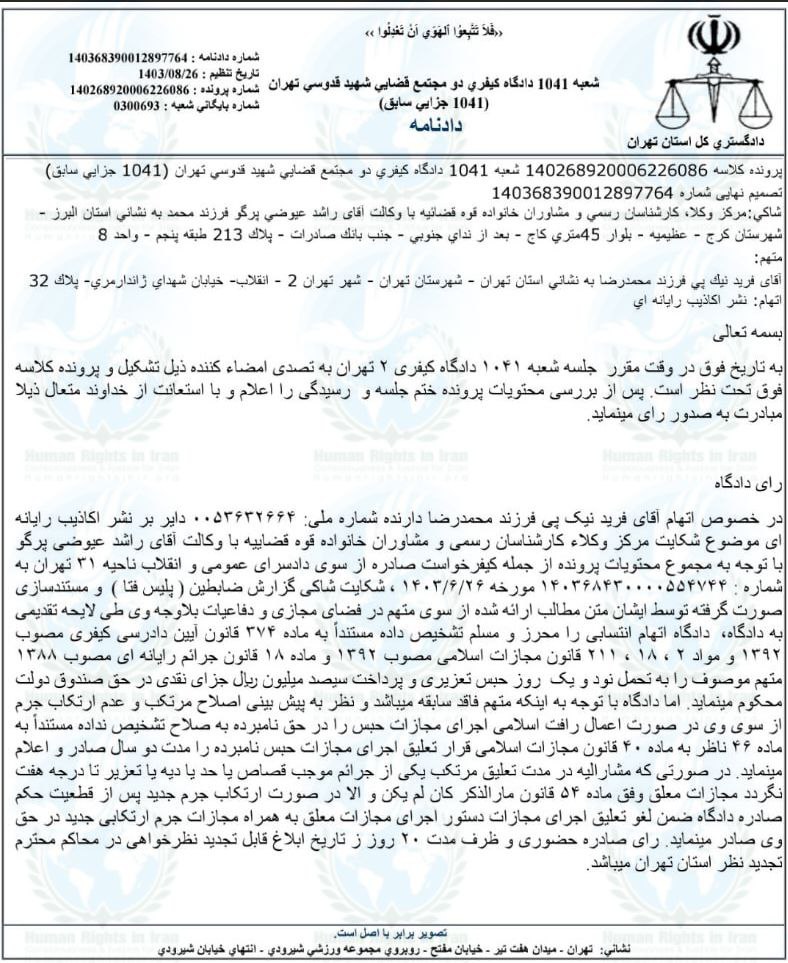 ‹‹فَلاَ تَتَّبِعُوا الهَوَي اَنْ تَعْدِلُوا ››
شماره دادنامه : 140368390012897764
تاريخ تنظيم : 1403/08/26
شماره پرونده : 140268920006226086
شماره بايگاني شعبه : 0300693
شعبه 1041 دادگاه کيفري دو مجتمع قضايي شهيد قدوسي تهران
(1041 جزايي سابق)
دادنامه
دادگستري کل استان تهران
پرونده کلاسه 140268920006226086 شعبه 1041 دادگاه کيفري دو مجتمع قضايي شهيد قدوسي تهران (1041 جزايي سابق)
تصميم نهايی شماره 140368390012897764
شاکي:مرکز وکلا، کارشناسان رسمي و مشاوران خانواده قوه قضائيه با وکالت آقای راشد عيوضي پرگو فرزند محمد به نشاني استان البرز -
شهرستان کرج - عظيميه - بلوار 45متري کاج - بعد از نداي جنوبي - جنب بانك صادرات - پلاك 213 طبقه پنجم - واحد 8
متهم:
آقای فريد نيك پي فرزند محمدرضا به نشاني استان تهران - شهرستان تهران - شهر تهران 2 - انقلاب- خيابان شهداي ژاندارمري- پلاك 32
اتهام: نشر اکاذيب رايانه اي
بسمه تعالی
به تاریخ فوق در وقت مقرر جلسه شعبه ۱۰۴۱ دادگاه کیفری ۲ تهران به تصدی امضاء کننده ذیل تشکیل و پرونده کلاسه
فوق تحت نظر است. پس از بررسی محتویات پرونده ختم جلسه و رسیدگی را اعلام و با استعانت از خداوند متعال ذیلا
مبادرت به صدور رای مینماید.
رای دادگاه
در خصوص اتهام آقای فرید نیک پی فرزند محمدرضا دارنده شماره ملی: ۰۰۵۳۶۳۲۶۶۴ دایر بر نشر اکاذیب رایانه
ای موضوع شکایت مرکز وکلاء کارشناسان رسمی و مشاوران خانواده قوه قضاییه با وکالت آقای راشد عیوضی پرگو
با توجه به مجموع محتویات پرونده از جمله کیفرخواست صادره از سوی دادسرای عمومی و انقلاب ناحیه ۳۱ تهران به
شماره : ۱۴۰۳۶۸۴۳۰۰۰۰۵۵۴۷۴۴ مورخه ۱۴۰۳/۶/۲۶ ، شکایت شاکی گزارش ضابطین ( پلیس فتا ) و مستندسازی
صورت گرفته توسط ایشان متن مطالب ارائه شده از سوی متهم در فضای مجازی و دفاعیات بلاوجه وی طی لایحه تقدیمی
به دادگاه، دادگاه اتهام انتسابی را محرز و مسلم تشخیص داده مستنداً به ماده ۳۷۴ قانون آیین دادرسی کیفری مصوب
۱۳۹۲ و مواد ۲ ، ۱۸ ، ۲۱۱ قانون مجازات اسلامی مصوب ۱۳۹۲ و ماده ۱۸ قانون جرائم رایانه ای مصوب ۱۳۸۸
متهم موصوف را به تحمل نود و یک روز حبس تعزیری و پرداخت سیصد میلیون ریال جزای نقدی در حق صندوق دولت
محکوم مینماید. اما دادگاه با توجه به اینکه متهم فاقد سابقه میباشد و نظر به پیش بینی اصلاح مرتکب و عدم ارتکاب جرم
از سوی وی در صورت اعمال رافت اسلامی اجرای مجازات حبس را در حق نامبرده به صلاح تشخیص نداده مستنداً به
ماده ۴۶ ناظر به ماده ۴۰ قانون مجازات اسلامی قرار تعلیق اجرای مجازات حبس نامبرده را مدت دو سال صادر و اعلام
مینماید. در صورتی که مشارالیه در مدت تعلیق مرتکب یکی از جرائم موجب قصاص یا حد یا دیه یا تعزیر تا درجه هفت
نگردد مجازات معلق وفق ماده ۵۴ قانون مارالذکر کان لم یکن و الا در صورت ارتکاب جرم جدید پس از قطعیت حکم
صادره دادگاه ضمن لغو تعلیق اجرای مجازات دستور اجرای مجازات معلق به همراه مجازات جرم ارتکابی جدید در حق
وی صادر مینماید. رای صادره حضوری و ظرف مدت ۲۰ روز ز تاریخ ابلاغ قابل تجدید نظرخواهی در محاکم محترم
تجدید نظر استان تهران میباشد.
تصوير برابر با اصل است.
نشاني: تهران - ميدان هفت تير - خيابان مفتح - روبروي مجموعه ورزشي شيرودي - انتهاي خيابان شيرودي
Human Rights in Iran